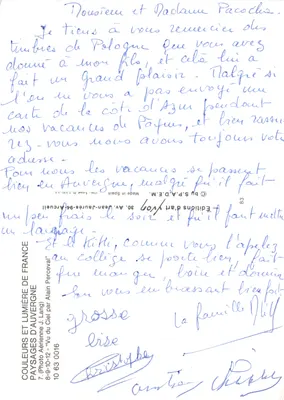 Monsieur et Madame Pacocha.
Je tiens à vous remercier des
timbres de Pologne que vous avez
donné à mon fils, et celà lui a
fait un grand plaisir. Malgré si
l'on ne vous a pas envoyé une
carte de la côte d'Azur pendant
nos vacances de Pâques, et bien rassu
rez-vous nous avons toujours votre
adresse.
Pour nous les vacances se passent
bien en Auvergne, malgré qu'il fait
un peu frais le soir et qu'il faut mettre
un lainage.
Et le Kiki, comme vous l'appelez
au collège se porte bien, fait
que manger, boire et dormir
En vous embrassant bien fort
grosse
bise
La famille
Christophe
Christian
© by S.P.A.D.E.M.
Editions d'art yvon, 30, Av. Jean-Jaurès
COULEURS ET LUMIÈRE DE FRANCE
PAYSAGES D'AUVERGNE
7 (Photo Aérienne J. Lang)
8-9-10-12 - "Vu du Ciel par Alain Perceval"
10 63 0016